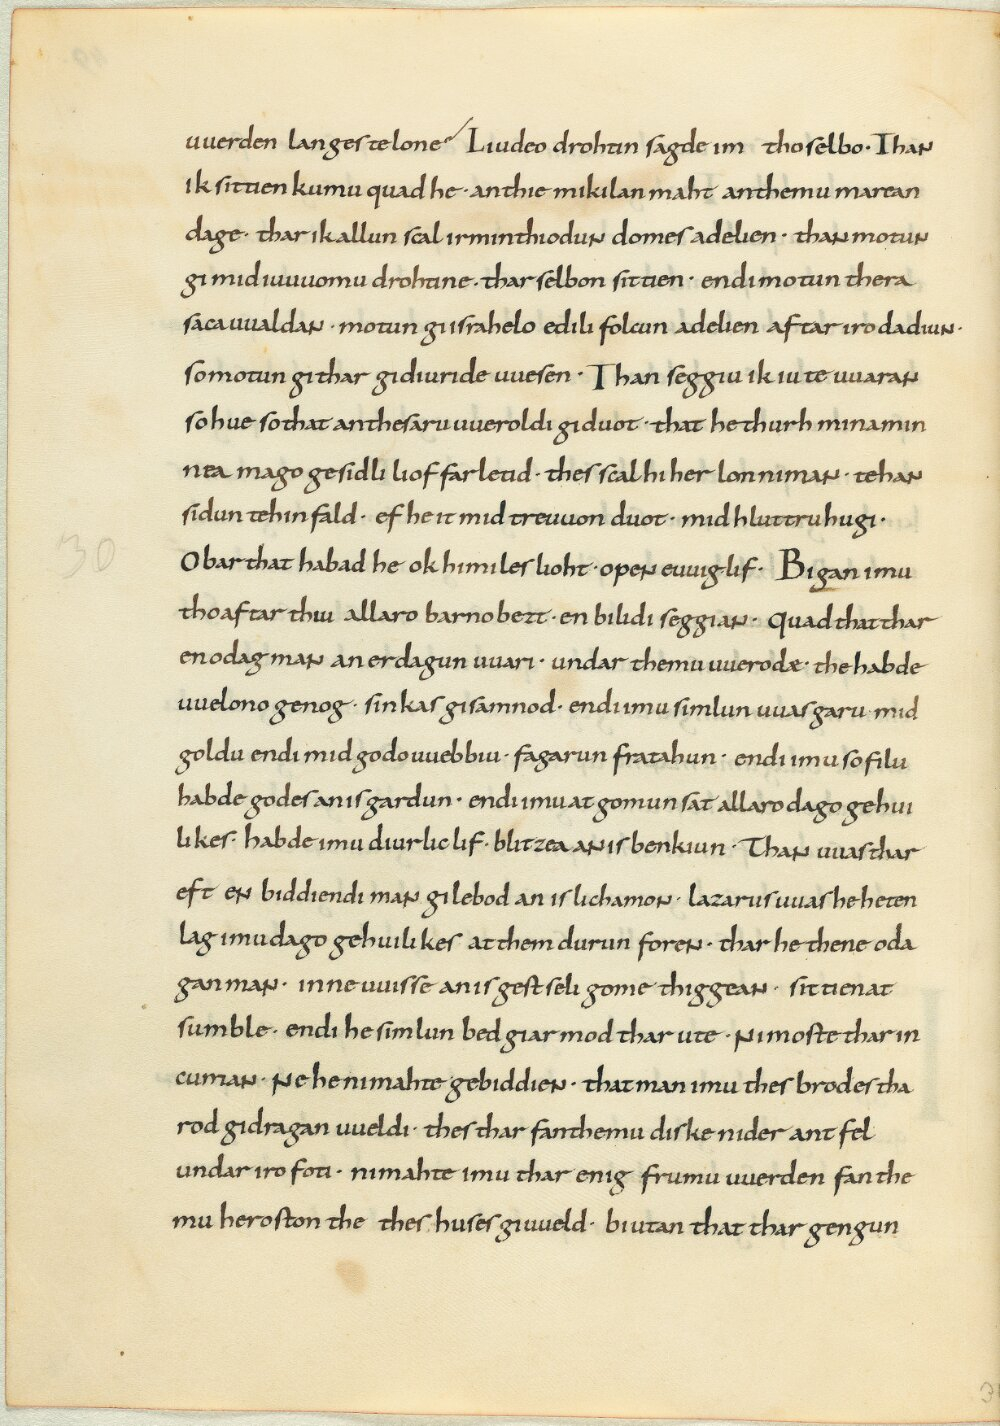 uuerden langes te lone Liudeo drohtin sagde im tho selbo· Than
ik sittien kumu quad he· an thie mikilan maht an themu marean
dage· thar ik allun scal irminthiodun domes adelien· than motun
gi mid iuuuomu drohtine· thar selbon sittien· endi motun thera
saca uualdan· motun gi israhelo edili folcun adelien aftar iro dadiun·
so motun gi thar gidiuride uuesen· Than seggiu ik iu te uuaran
so hue so that an thesaru uueroldi giduot· that he thurh mina min
nea mago gesidli liof farletid· thes scal hi her lon niman· tehan
sidun tehinfald· ef he it mid treuuon duot· mid hluttru hugi·
Obar that habad he ok himiles lioht· open euuig lif· Bigan imu
tho aftar thiu allaro barno bezt· en bilidi seggian· quad that thar
en odag man an erdagun uuari· undar themu uuerodæ· the habde
uuelono genog· sinkas gisamnod· endi imu simlun uuas garu mid
goldu endi mid godouuebbiu· fagarun fratahun· endi imu so filu
habde godes an is gardun· endi imu at gomun sat allaro dago gehui
likes· habde imu diurlic lif· blitzea an is benkiun· Than uuas thar
eft en biddiendi man gilebod an is lichamon· lazarus uuas he heten
lag imu dago gehuilikes at them durun foren· thar he thene oda
gan man· inne uuisse an is gestseli gome thiggean· sittien at
sumble· endi he simlun bed giarmod thar ute· ni moste thar in
cuman· ne he ni mahte gebiddien· that man imu thes brodes tha
rod gidragan uueldi· thes thar fan themu diske nider antfel
undar iro foti· ni mahte imu thar enig frumu uuerden fan the
mu heroston the thes huses giuueld· biutan that thar gengun
30